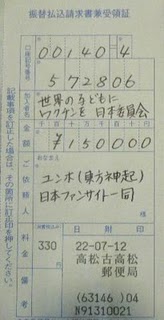 振替払込請求書兼受領証
00140-4
572806
世界の子どもに
ワクチンを 日本委員会
千 百 十 万 千 百 十 円
¥150000
ユンホ(東方神起)
日本ファンサイト一同
様
料金
330
円
備考
日附印
22-07-12
高松古高松
郵便局
(63146)04
N91310021
記載事項を訂正した場合は、その箇所に訂正印を押してください。